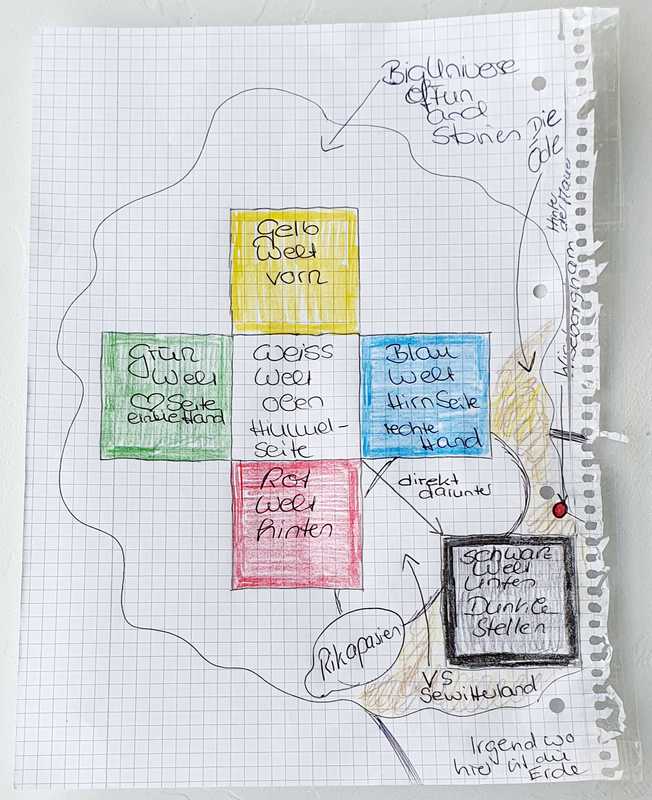 Big Universe
of Fun
and
Stories
Die
Öde
Hinter
der Mauer
Wiseborgham
Gelb
Welt
vorn
Grün
Welt
♡ Seite
linke Hand
Weiss
Welt
oben
Himmel-
seite
Blau
Welt
Hirn Seite
rechte
Hand
Rot
Welt
hinten
direkt
darunter
Schwarz
Welt
unten
Dunkle
Stellen
Rikapasien
VS
Irgendwo
hier ist die
Erde